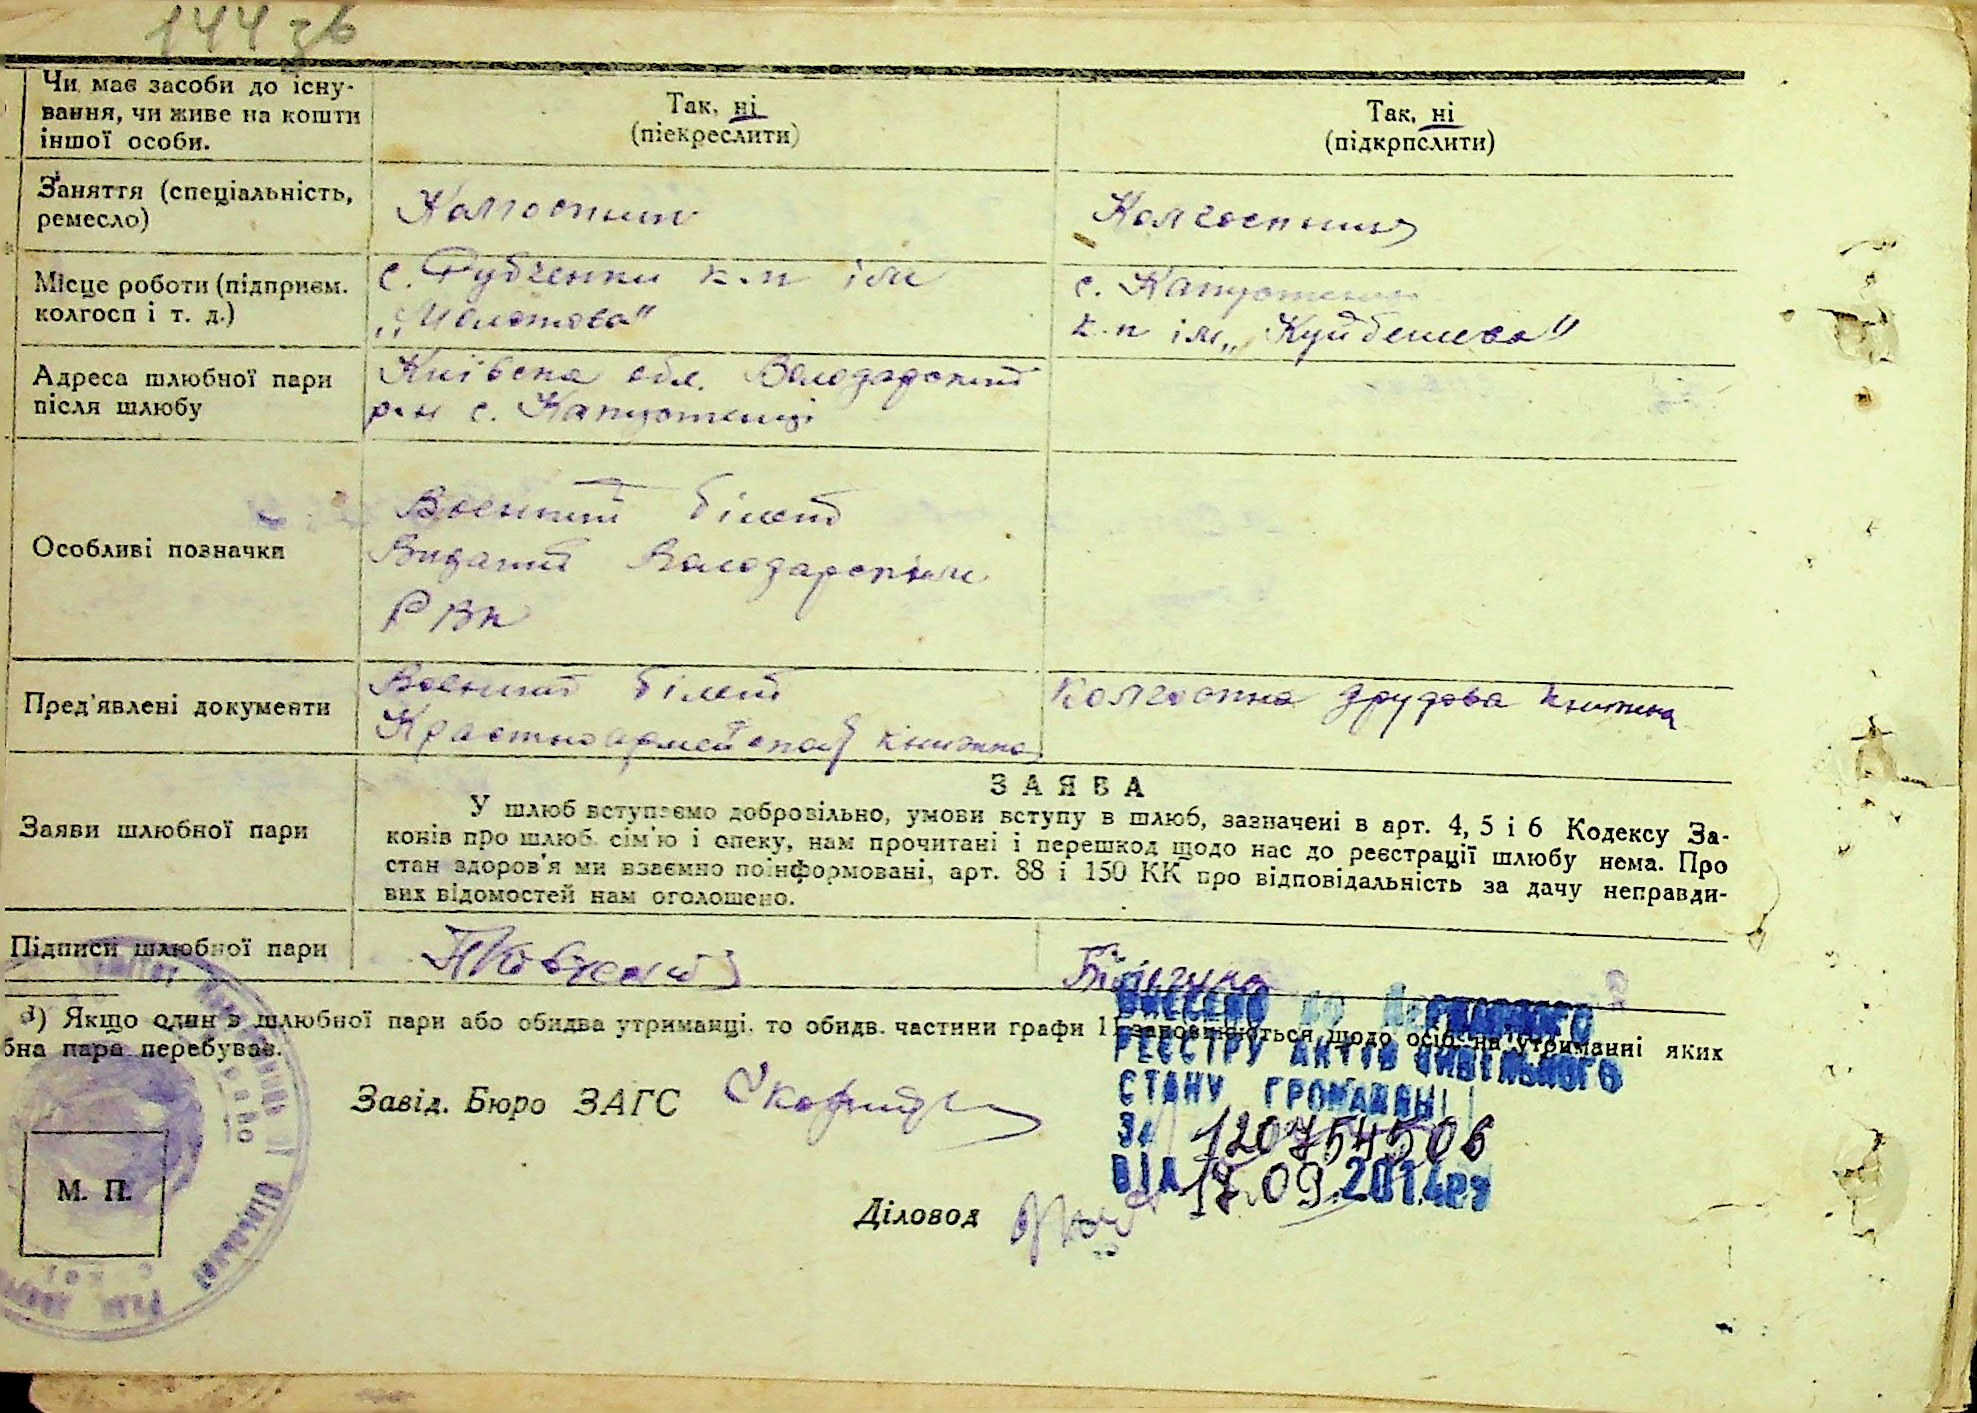 144 зв
Чи має засоби до існу-
вання, чи живе на кошти
іншої особи.
Так, ні
(піекреслити)
Так, ні
(підкрпслити)
Заняття (спеціальність,
ремесло)
Колгоспник
Колгоспниця
Місце роботи (підприєм.
колгосп і т. д.)
с. Рубченки к-п ім
„Молотова"
с. Капустинці
к-п ім „Куйбешева"
Адреса шлюбної пари
після шлюбу
Київська обл. Володарський
р-н с. Капустинці
Особливі позначки
Военний білет
Виданий Володарским
РВК
Пред'явлені документи
Военний білет
книжка
Колгоспна трудова книжка
Заяви шлюбної пари
ЗАЯВА
У шлюб вступаємо добровільно, умови вступу в шлюб, зазначені в арт. 4, 5 і 6 Кодексу За-
конів про шлюб. сім'ю і опеку, нам прочитані і перешкод щодо нас до реєстрації шлюбу нема. Про
стан здоров'я ми взаємно поінформовані, арт. 88 і 150 КК про відповідальність за дачу неправди-
вих відомостей нам оголошено.
Підписи шлюбної пари
1) Якщо один з шлюбної пари або обидва утриманці. то обидв. частини графи 11 заповнюються щодо осіб на утриманні яких
бна пара перебуває.
ВНЕСЕНО ДО ДЕРЖАВНОГО
РЕЄСТРУ АКТІВ ЦИВІЛЬНОГО
СТАНУ ГРОМАДЯН
За 120754506
ВІД 17.09.2014р
Завід. Бюро ЗАГС
М. П.
Діловод